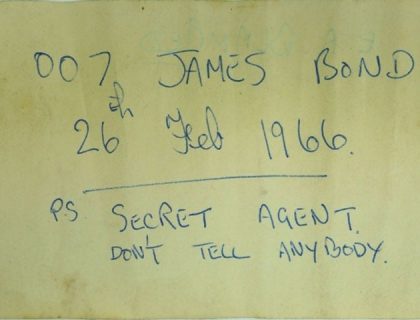 007 JAMES BOND
26th Feb 1966.
P.S. SECRET AGENT.
DON'T TELL ANYBODY.